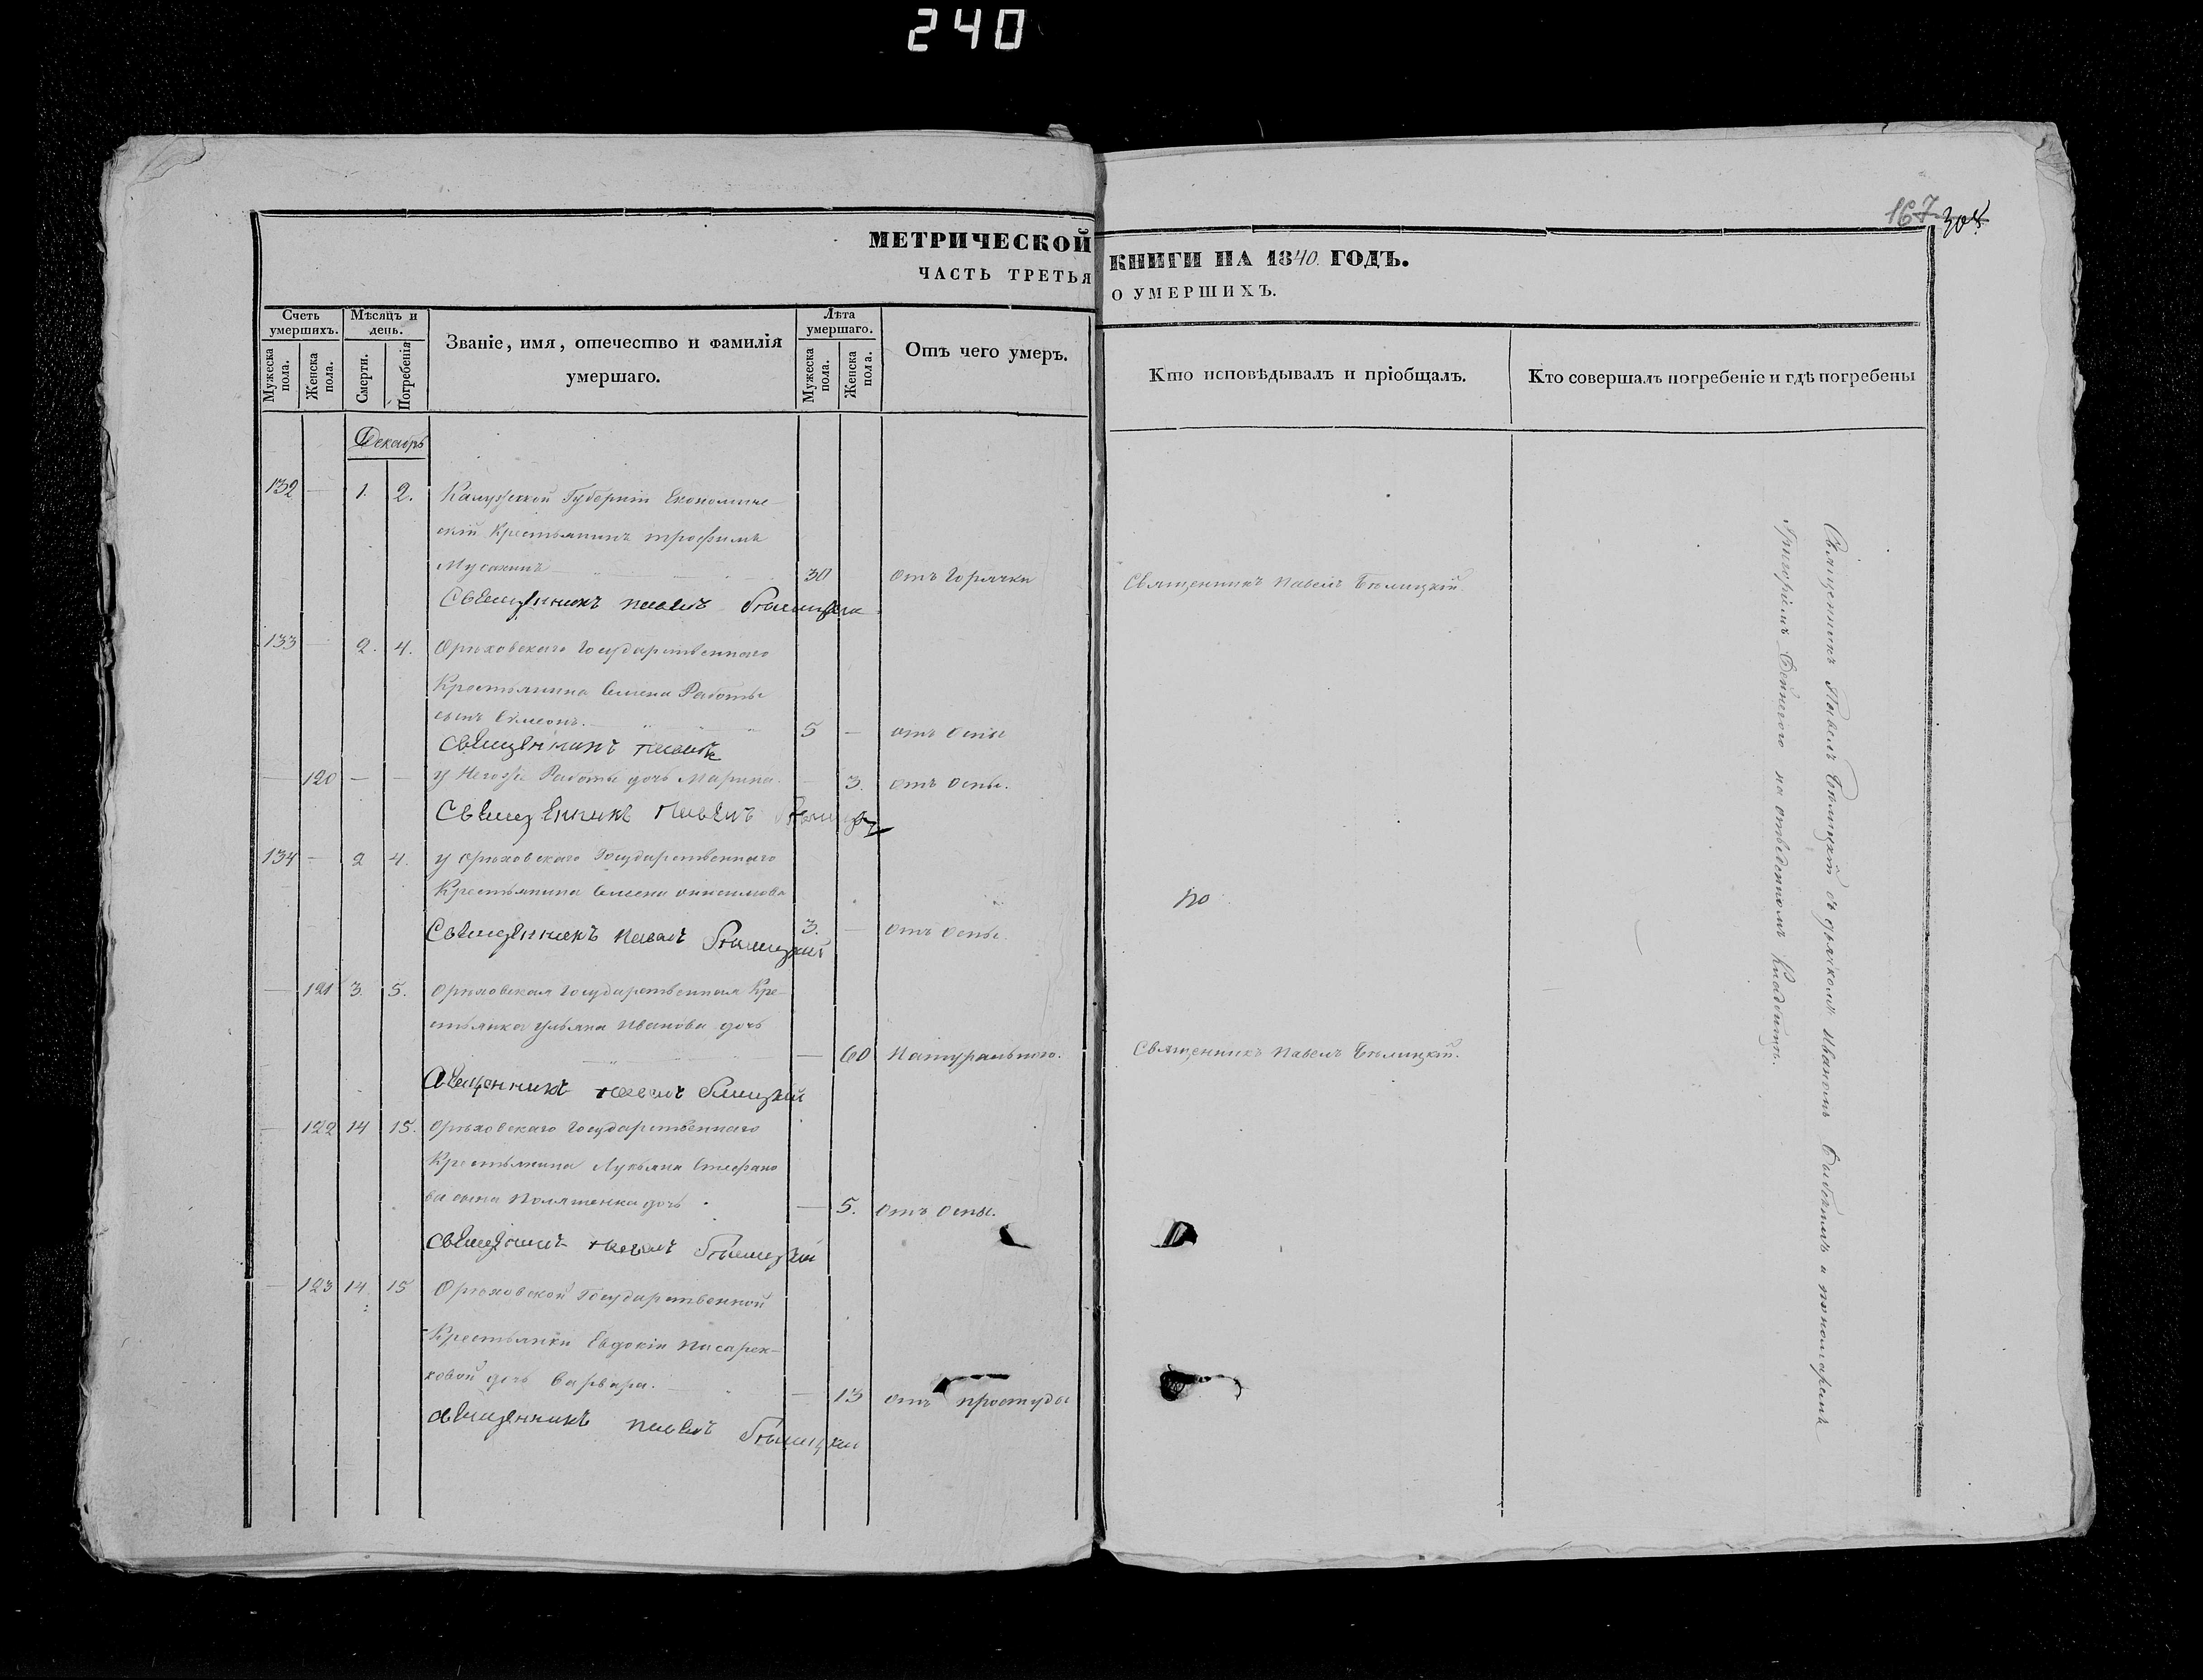 240
167 304
МЕТРИЧЕСКОЙ КНИГИ НА 1840. ГОДЪ.
ЧАСТЬ ТРЕТЬЯ О УМЕРШИХЪ.
Счетъ умершихъ.
Мужеска пола.
Женска пола.
Мѣсяцъ и день.
Смерти.
Погребенія
Званіе, имя, отечество и фамилія умершаго.
Лѣта умершаго.
Мужеска пола.
Женска пола.
Отъ чего умеръ.
Кто исповѣдывалъ и пріобщалъ.
Кто совершалъ погребеніе и гдѣ погребены
Декабрь
132 — 1. 2. Калужской Губерніи Економиче
скій Крестьянинъ трофимъ
Мусакинъ 30 отъ Горячки Священникъ Павелъ Бѣлицкій.
Священникъ павелъ Бѣлицкій
133 — 2. 4. Орѣховскаго Государственнаго
Крестьянина Семена Работы
сынъ Симеонъ. 5 — отъ оспы
Священникъ павелъ
— 120 — — У Негожъ Работы дочь Марина. — 3. отъ оспы.
Священникъ Павелъ Бѣлицкій
134 — 2 4. У Орѣховскаго Государственнаго
Крестьянина Семена
3. — отъ оспы.
Священникъ павелъ Бѣлицкій
— 121 3. 5. Орѣховская Государственная Кре-
стьянка Ульяна Иванова дочь
— 60 Натуральною. Священникъ Павелъ Бѣлицкій.
Священникъ павелъ Бѣлицкій
— 122 14 15. Орѣховскаго Государственнаго
Крестьянина Лукьяна Стефано
ва сына дочь — 5. отъ оспы.
Священникъ павелъ Бѣлицкій
— 123 14. 15 Орѣховской Государственной
Крестьянки Евдокіи Писарен-
ковой дочь Варвара. — 13 отъ простуды
священникъ павелъ Бѣлицкій
Священникъ Павелъ Бѣлицкій съ дьячкомъ Иваномъ и пономаремъ
Григоріемъ на отведенномъ Кладбищѣ.